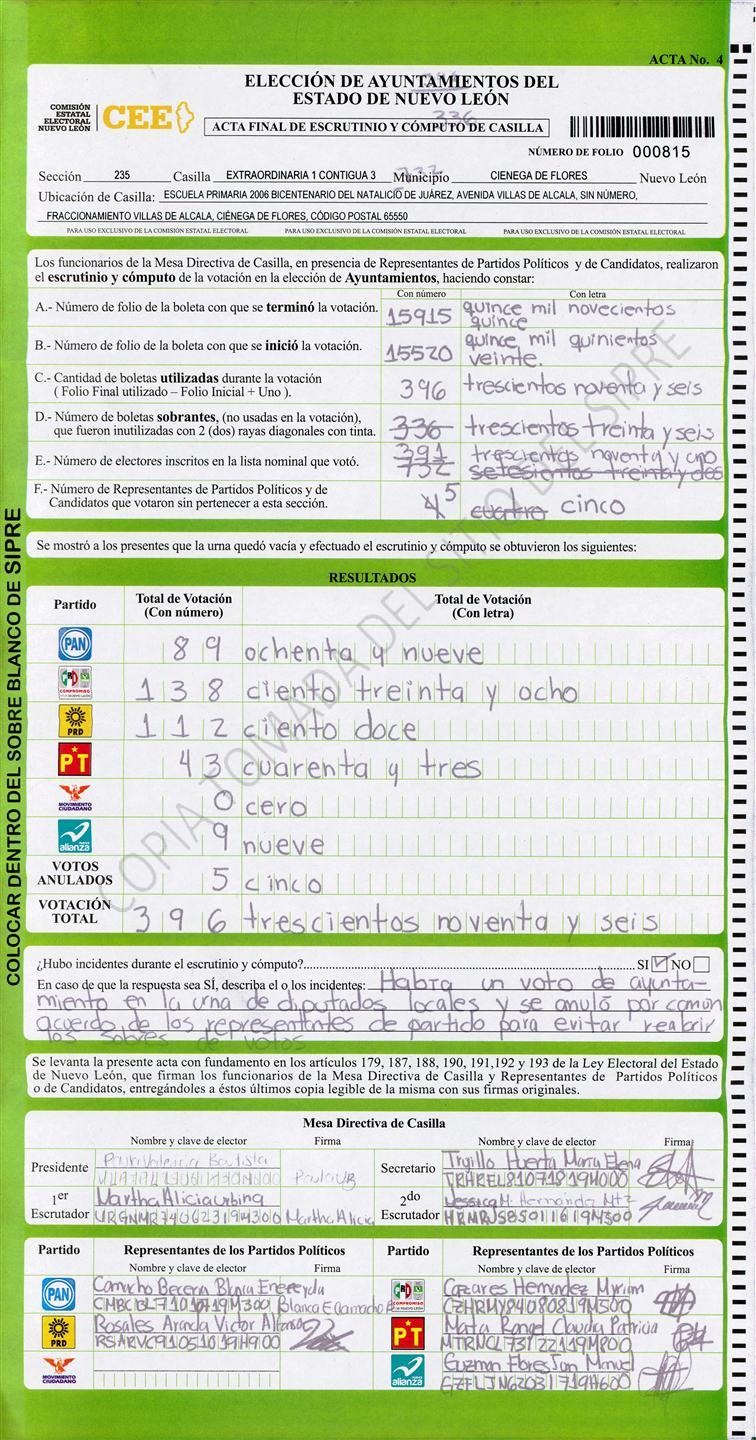 ACTA No. 4
ELECCIÓN DE AYUNTAMIENTOS DEL
ESTADO DE NUEVO LEÓN
COMISIÓN
ESTATAL
ELECTORAL
NUEVO LEÓN
CEE
ACTA FINAL DE ESCRUTINIO Y CÓMPUTO DE CASILLA
336
NÚMERO DE FOLIO 000815
732
Sección 235 Casilla EXTRAORDINARIA 1 CONTIGUA 3 Municipio CIENEGA DE FLORES Nuevo León
Ubicación de Casilla: ESCUELA PRIMARIA 2006 BICENTENARIO DEL NATALICIO DE JUÁREZ, AVENIDA VILLAS DE ALCALA, SIN NÚMERO,
FRACCIONAMIENTO VILLAS DE ALCALA, CIÉNEGA DE FLORES, CÓDIGO POSTAL 65550
PARA USO EXCLUSIVO DE LA COMISIÓN ESTATAL ELECTORAL PARA USO EXCLUSIVO DE LA COMISIÓN ESTATAL ELECTORAL PARA USO EXCLUSIVO DE LA COMISIÓN ESTATAL ELECTORAL
Los funcionarios de la Mesa Directiva de Casilla, en presencia de Representantes de Partidos Políticos y de Candidatos, realizaron
el escrutinio y cómputo de la votación en la elección de Ayuntamientos, haciendo constar:
Con número Con letra
A.- Número de folio de la boleta con que se terminó la votación. 15915 quince mil novecientos
quince
B.- Número de folio de la boleta con que se inició la votación. 15520 quince mil quinientos
veinte.
C.- Cantidad de boletas utilizadas durante la votación
( Folio Final utilizado – Folio Inicial + Uno ). 396 trescientos noventa y seis
D.- Número de boletas sobrantes, (no usadas en la votación),
que fueron inutilizadas con 2 (dos) rayas diagonales con tinta. 336 trescientos treinta y seis
391 trescientos noventa y uno
E.- Número de electores inscritos en la lista nominal que votó. 732 setesientos treinta y dos
F.- Número de Representantes de Partidos Políticos y de
Candidatos que votaron sin pertenecer a esta sección. 4 5 cuatro cinco
Se mostró a los presentes que la urna quedó vacía y efectuado el escrutinio y cómputo se obtuvieron los siguientes:
RESULTADOS
Partido Total de Votación Total de Votación
(Con número) (Con letra)
PAN 89 ochenta y nueve
PRD COMPROMISO 138 ciento treinta y ocho
PRD 112 ciento doce
PT 43 cuarenta y tres
MOVIMIENTO CIUDADANO 0 cero
nueva alianza 9 nueve
VOTOS ANULADOS 5 cinco
VOTACIÓN TOTAL 396 trescientos noventa y seis
¿Hubo incidentes durante el escrutinio y cómputo? SI NO
En caso de que la respuesta sea SÍ, describa el o los incidentes: Habra un voto de ayunta-
miento en la urna de diputados locales y se anuló por comun
acuerdo de los representantes de partido para evitar reabrir
los sobres de votos
Se levanta la presente acta con fundamento en los artículos 179, 187, 188, 190, 191,192 y 193 de la Ley Electoral del Estado
de Nuevo León, que firman los funcionarios de la Mesa Directiva de Casilla y Representantes de Partidos Políticos
o de Candidatos, entregándoles a éstos últimos copia legible de la misma con sus firmas originales.
Mesa Directiva de Casilla
Nombre y clave de elector Firma Nombre y clave de elector Firma
Presidente Bautista Secretario Trujillo Huerta Maria Elena
TRHREL81071819M000
1er Escrutador Martha Alicia Urbina 2do Escrutador Jessica M. Hernández Mtz
URGNMR74062319M300 Martha Alicia HRMRJS85011619M300
Partido Representantes de los Partidos Políticos Partido Representantes de los Partidos Políticos
Nombre y clave de elector Firma Nombre y clave de elector Firma
PAN Camacho Becerra Blanca Enereyda Cazares Hernandez Myriam
Blanca E Camacho B CZHRMY84080819M500
PRD Rosales Aranda Victor Alfonso PT Mata Rangel Claudia Patricia
RSARVC91051019H900 MTRNCL73122119M800
MOVIMIENTO CIUDADANO nueva alianza Guzman Flores Juan Manuel
GZFLJN62031719H600
COLOCAR DENTRO DEL SOBRE BLANCO DE SIPRE
COPIA TOMADA DEL SITIO DEL SIPRE